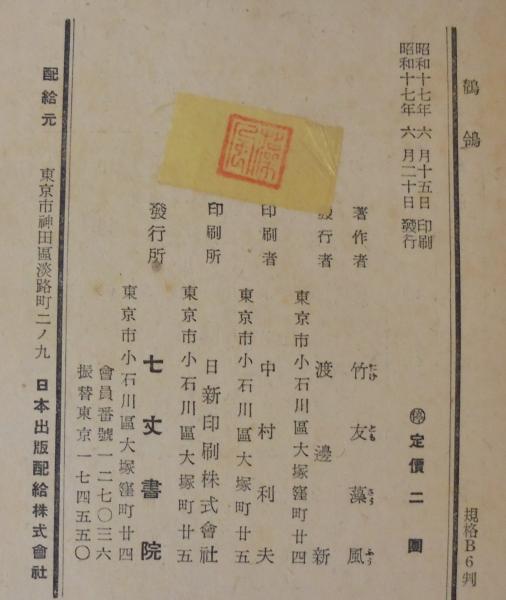 鶺鴒
規格B6判
昭和十七年六月十五日 印刷
昭和十七年六月二十日 發行
㊕定價二圓
著作者 竹友藻風
たけ とも さう ふう
發行者 渡邊新
東京市小石川區大塚窪町廿四
印刷者 中村利夫
東京市小石川區大塚町廿五
印刷所 日新印刷株式會社
東京市小石川區大塚町廿五
發行所 七丈書院
東京市小石川區大塚窪町廿四
會員番號一二七〇三六
振替東京一七四五五〇
配給元 東京市神田區淡路町二ノ九 日本出版配給株式會社